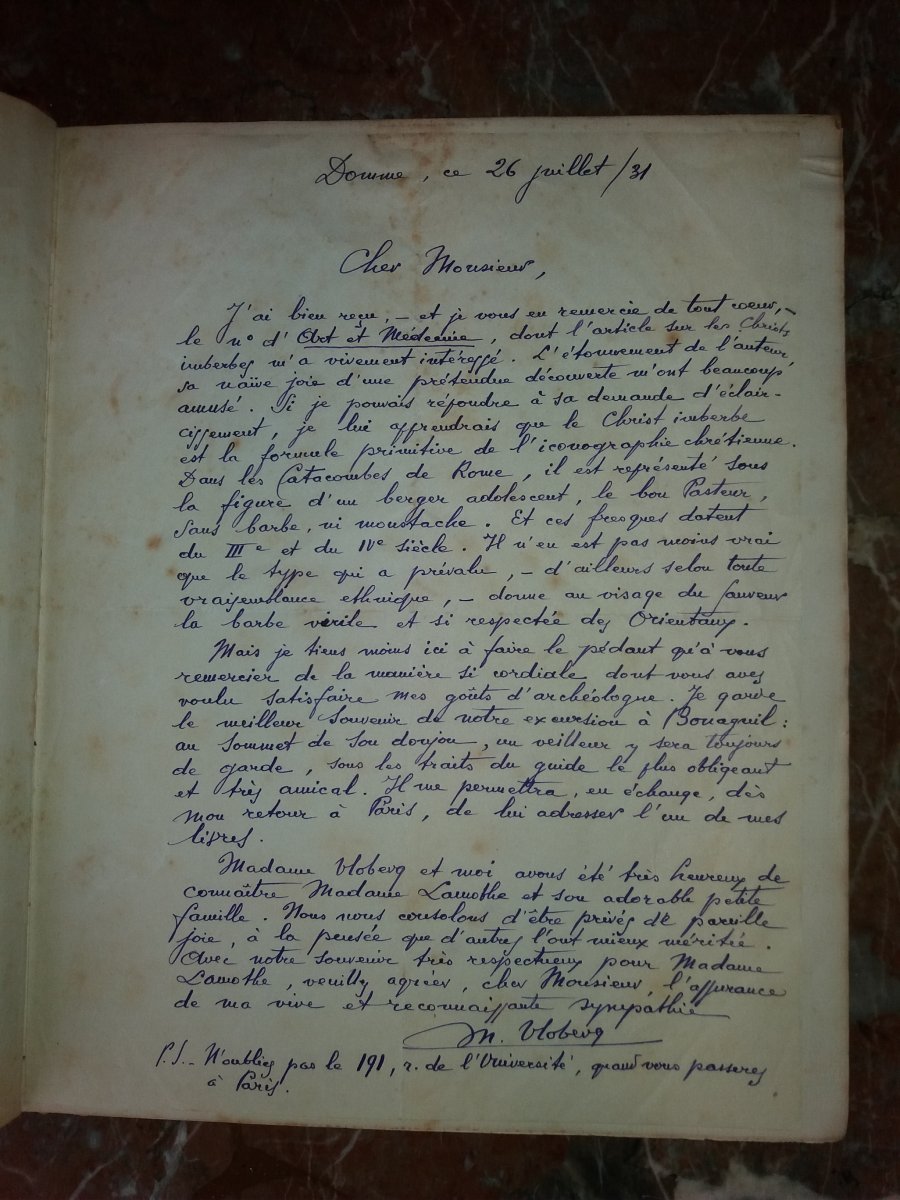 Domme, ce 26 juillet/31
Cher Monsieur,
J'ai bien reçu, – et je vous en remercie de tout coeur, –
le n° d'Art et Médecine, dont l'article sur les Christs
imberbes m'a vivement intéressé. L'étonnement de l'auteur
sa naïve joie d'une prétendue découverte m'ont beaucoup
amusé. Si je pouvais répondre à sa demande d'éclair-
cissement, je lui apprendrais que le Christ imberbe
est la formule primitive de l'iconographie chrétienne.
Dans les Catacombes de Rome, il est représenté sous
la figure d'un berger adolescent, le bon Pasteur,
sans barbe, ni moustache. Et ces fresques datent
du IIIe et du IVe siècle. Il n'en est pas moins vrai
que le type qui a prévalu, – d'ailleurs selon toute
vraisemblance ethnique, – donne au visage du Sauveur
la barbe virile et si respectée des Orientaux.
Mais je tiens moins ici à faire le pédant qu'à vous
remercier de la manière si cordiale dont vous avez
voulu satisfaire mes goûts d'archéologue. Je garde
le meilleur souvenir de notre excursion à Bonaguil :
au sommet de son donjon, un veilleur y sera toujours
de garde, sous les traits du guide le plus obligeant
et très amical. Il me permettra, en échange, dès
mon retour à Paris, de lui adresser l'un de mes
livres.
Madame Vloberg et moi avons été très heureux de
connaître Madame Lamothe et son adorable petite
famille. Nous nous consolons d'être privés de pareille
joie, à la pensée que d'autres l'ont mieux méritée.
Avec notre souvenir très respectueux pour Madame
Lamothe, veuillez agréer, cher Monsieur, l'assurance
de ma vive et reconnaissante sympathie
M. Vloberg
P.S. – N'oubliez pas le 191, r. de l'Université, quand vous passerez
à Paris.